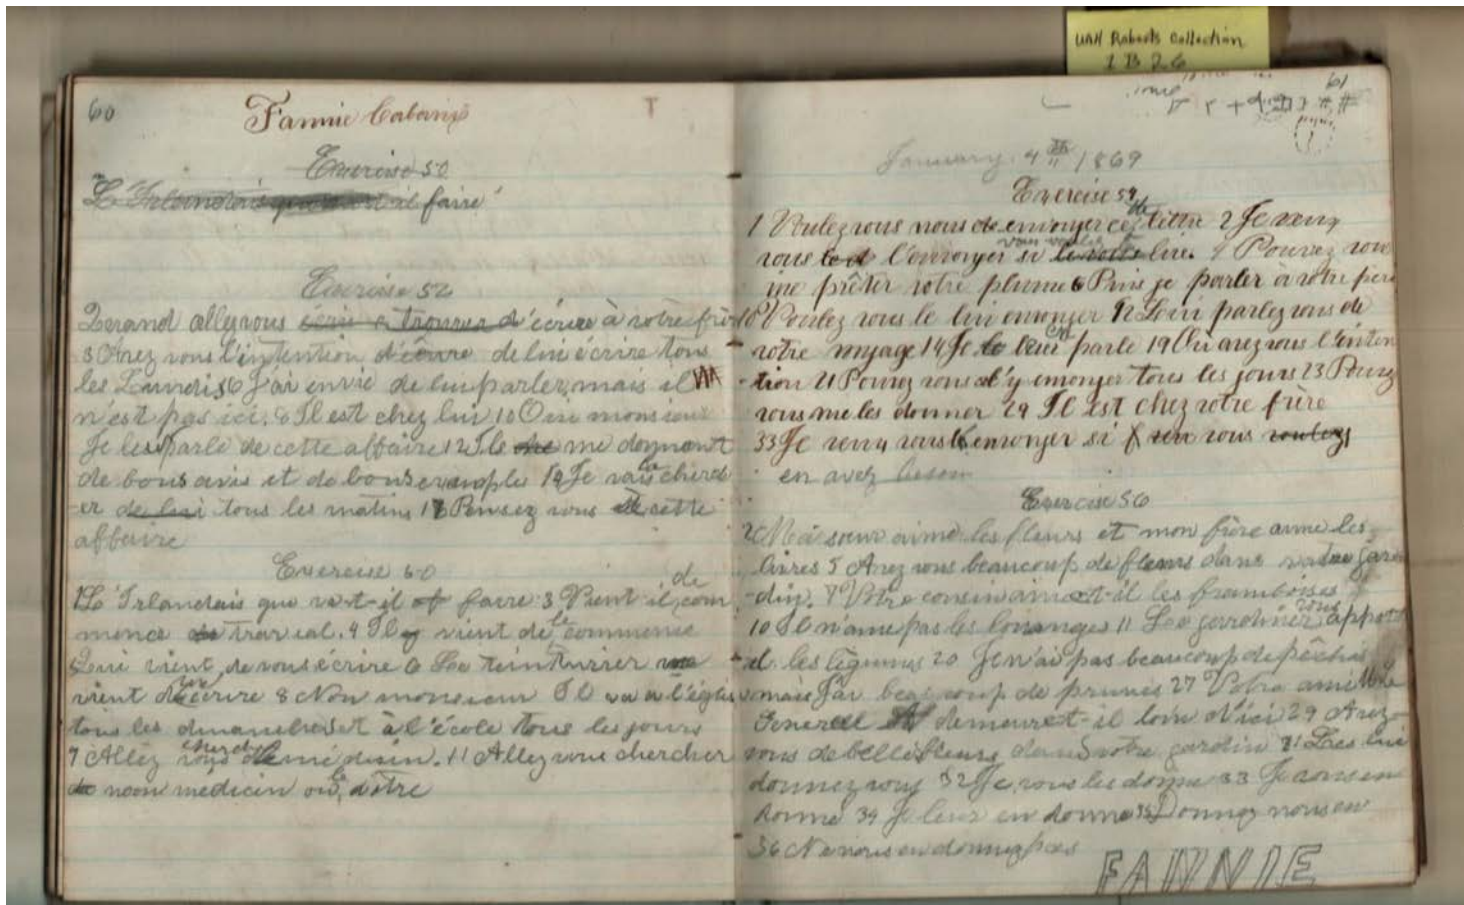 UAH Roberts Collection
1 B 26
60
Fannie Cabanis
Exercise 50
L'Irlandais il faire
Exercise 52
2 quand allez vous d'écrire à votre frère
3 Avez vous l'intention de lui écrire tous
les Lundis 6 J'ai envie de lui parlez, mais il
n'est pas ici. 8 Il est chez lui 10 Oui monsieur
Je les parle de cette affaire 12 Ils me donnent
de bons avis et de bons examples 14 Je vais le cherch
-er de lui tous les matins 18 Pensez vous à cette
affaire
Exercise 60
1 L'Irlandais que va-t-il faire 3 Vient-il de com
mence travial. 4 Il vient de le commence
Qui vient de vous écrire 6 Le teinturier
vient écrire 8 Non monsieur Il va a l'églis
tous les dimanches et à l'école tous les jours
9 Allez vous cherche médisin. 11 Allez vous chercher
noon medicin ou le vôtre
61
January. 4 th 1869
Exercise 54
1 Voulez vous nous envoyer cette lettre 2 Je veux
vous l'envoyer si vous voulez lire. 4 Pouvez vous
me prêter votre plume 6 Puis je parler à votre père
10 Voulez vous le lui envoyer 12 Lui parlez vous de
votre voyage 14 Je leur en parle 19 Ou avez vous l'inten
-tion 21 Pouvez vous d'y envoyer tous les jours 23 Pouvez
vous me les donner 29 Il est chez votre frère
33 Je veux vous envoyer si vous voulez
en avez besoin
Exercise 56
2 Ma sœur aime les fleurs et mon frère aime les
livres 5 Avez vous beaucoup de fleurs dans votre jar
-din. 7 Votre cousin aime-t-il les framboises
10 Il n'aime pas les louanges 11 Le jardinier vous apport
-il les légumes 20 Je n'ai pas beaucoup de pêches
mais J'ai beaucoup de prunes 27 Votre ami le
General demeure-t-il loin d'ici 29 Avez
vous de belle fleurs dans votre jardin 31 Les lui
donnez vous 32 Je vous les donne 33 Je vous en
donne 34 Je leur en donne 35 Donnez nous en
36 Ne nous en donnez pas
FANNIE